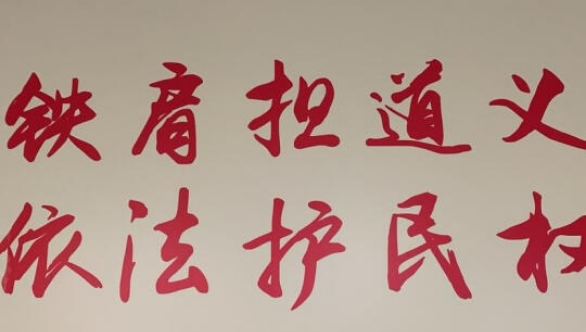 铁肩担道义
依法护民权